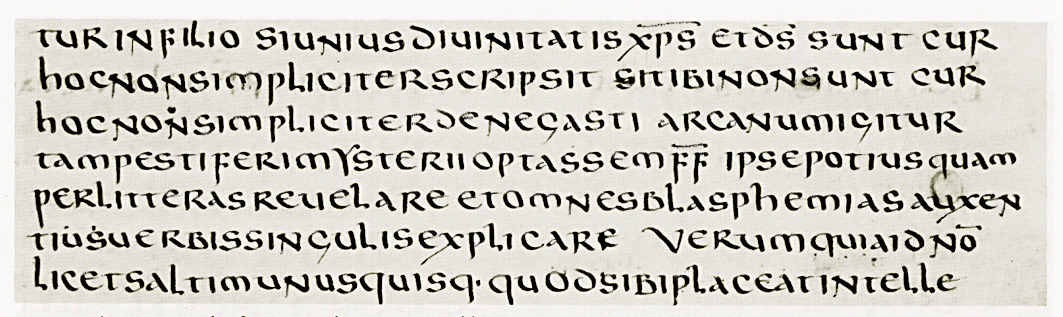 TURINFILIO SIUNIUSDIUINITATISXPS ETDS SUNT CUR
hOCNONSIMPLICITERSCRIPSIT SITIBINONSUNT CUR
hOCNONSIMPLICITERDENEGASTI ARCANUMIGITUR
TAMPESTIFERIMYSTERIIOPTASSEMFF IPSEPOTIUSQUAM
PERLITTERASREUELARE ETOMNESBLASPhEMIASAUXEN
TIUSUERBISSINGULISEXPLICARE VERUMQUIAIDNO
LICETSALTIMUNUSQUISQ· QUODSIBIPLACEATINTELLE